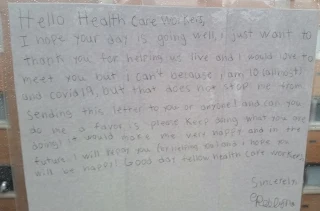 Hello Health Care Workers
I hope your day is going well, i just want to
thank you for helping us live and i would love to
meet you but i can't because i am 10 (almost)
and covid 19, but that does not stop me from
sending this letter to you or anyone! and can you
do me a favor is please keep doing what you are
doing! it would make me very happy and in the
future i will hope you
will be happy! Good day fellow health care workers
Sincerely